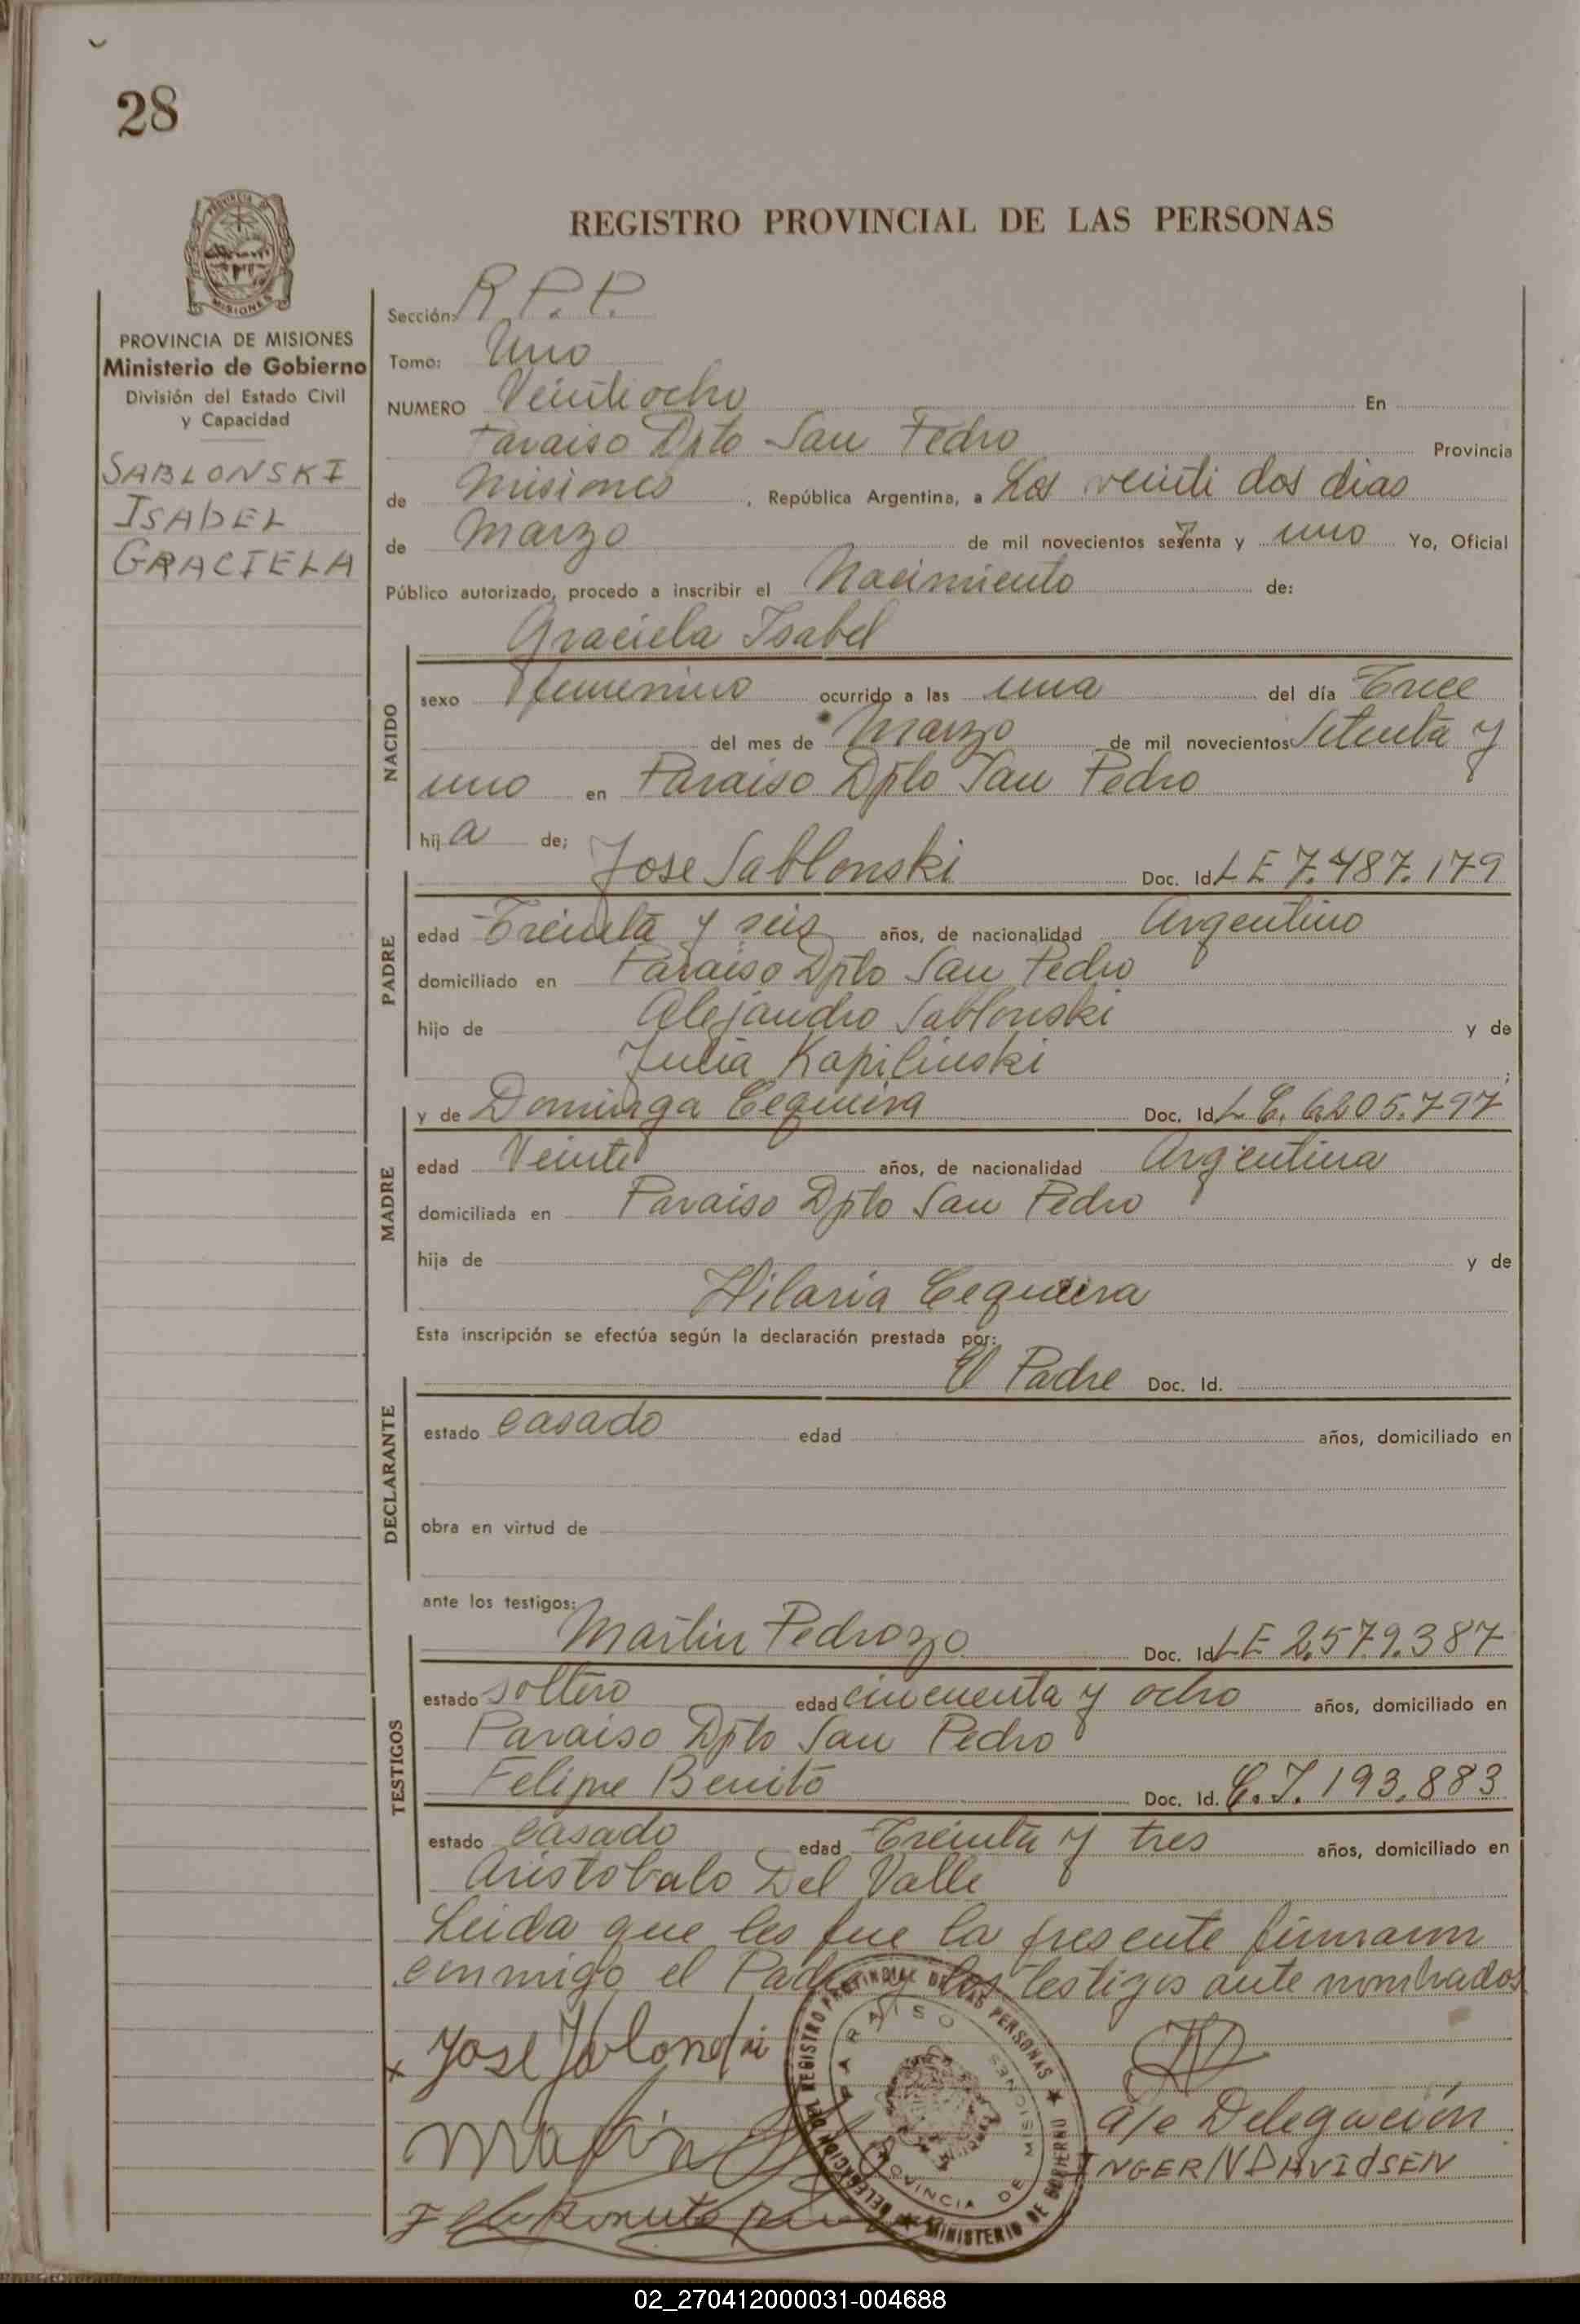 28
REGISTRO PROVINCIAL DE LAS PERSONAS
PROVINCIA DE MISIONES
Ministerio de Gobierno
División del Estado Civil
y Capacidad
SABLONSKI
ISABEL
GRACIELA
Sección: R.P.P.
Tomo: Uno
NUMERO Veinti ocho En
Paraiso Dpto San Pedro Provincia
de Misiones, República Argentina, a Los veinti dos dias
de Marzo de mil novecientos setenta y uno Yo, Oficial
Público autorizado, procedo a inscribir el Nacimiento de:
Graciela Isabel
NACIDO
sexo femenino ocurrido a las una del día Trece
del mes de Marzo de mil novecientos Setenta y
uno en Paraiso Dpto San Pedro
hija de;
PADRE
Jose Sablonski Doc. Id. L E 7.487.179
edad Treinta y seis años, de nacionalidad Argentino
domiciliado en Paraiso Dpto San Pedro
hijo de Alejandro Sablonski y de
Julia Kapilinski;
MADRE
y de Dominga Cequeira Doc. Id. L C. 6.205.797
edad Veinte años, de nacionalidad Argentina
domiciliada en Paraiso Dpto San Pedro
hija de y de
Hilaria Cequeira
Esta inscripción se efectúa según la declaración prestada por:
DECLARANTE
El Padre Doc. Id.
estado casado edad años, domiciliado en
obra en virtud de
ante los testigos:
TESTIGOS
Martin Pedrozo Doc. Id. L E 2.579.387
estado soltero edad cincuenta y ocho años, domiciliado en
Paraiso Dpto San Pedro
Felipe Benito Doc. Id. C.I. 193.883
estado casado edad Treinta y tres años, domiciliado en
Aristobalo Del Valle
Leida que les fue la presente firmann
conmigo el Padre y los testigos ante nombrados
x Jose
Martin
a/c Delegación
INGER N DAVIdSEN
DELEGACION DEL REGISTRO PROVINCIAL DE LAS PERSONAS
MINISTERIO DE GOBIERNO
PARAISO
PROVINCIA DE MISIONES
02_270412000031-004688